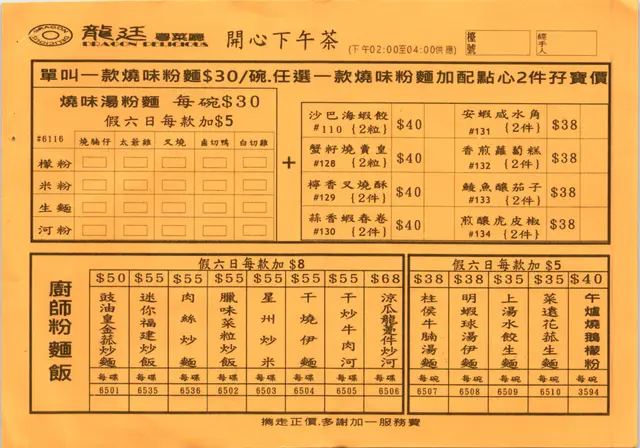 DRAGON DELICIOUS
龍廷 粵菜廳
DRAGON DELICIOUS
開心下午茶
(下午02:00至04:00供應)
檯號
經手人
單叫一款燒味粉麵$30/碗.任選一款燒味粉麵加配點心2件孖寶價
燒味湯粉麵 每碗$30
假六日每款加$5
#6116 燒腩仔 太爺雞 叉燒 鹵切鴨 白切雞
檬粉
米粉
生麵
河粉
+
沙巴海蝦餃 #110 {2粒} $40
蟹籽燒賣皇 #128 {2粒} $40
檸香叉燒酥 #129 {2件} $40
蒜香蝦春卷 #130 {2件} $40
安蝦咸水角 #131 {2件} $38
香煎蘿蔔糕 #132 {2件} $38
鯪魚釀茄子 #133 {2件} $38
煎釀虎皮椒 #134 {2件} $38
廚師粉麵飯
假六日每款加$8
$50 $55 $55 $55 $55 $55 $55 $68
豉油皇金菰炒麵
迷你福建炒飯
肉絲炒麵
臘味菜粒炒飯
星州炒米
干燒伊麵
干炒牛肉河
涼瓜龍躉件炒河
每碟 每碟 每碟 每碟 每碟 每碟 每碟 每碟
6501 6535 6536 6502 6503 6504 6505 6506
假六日每款加$5
$38 $38 $35 $35 $40
柱侯牛腩湯麵
明蝦球湯伊麵
上湯水餃生麵
菜遠花菰生麵
午爐燒鵝檬粉
每碗 每碗 每碗 每碗 每碗
6507 6508 6509 6510 3594
擕走正價.多謝加一服務費